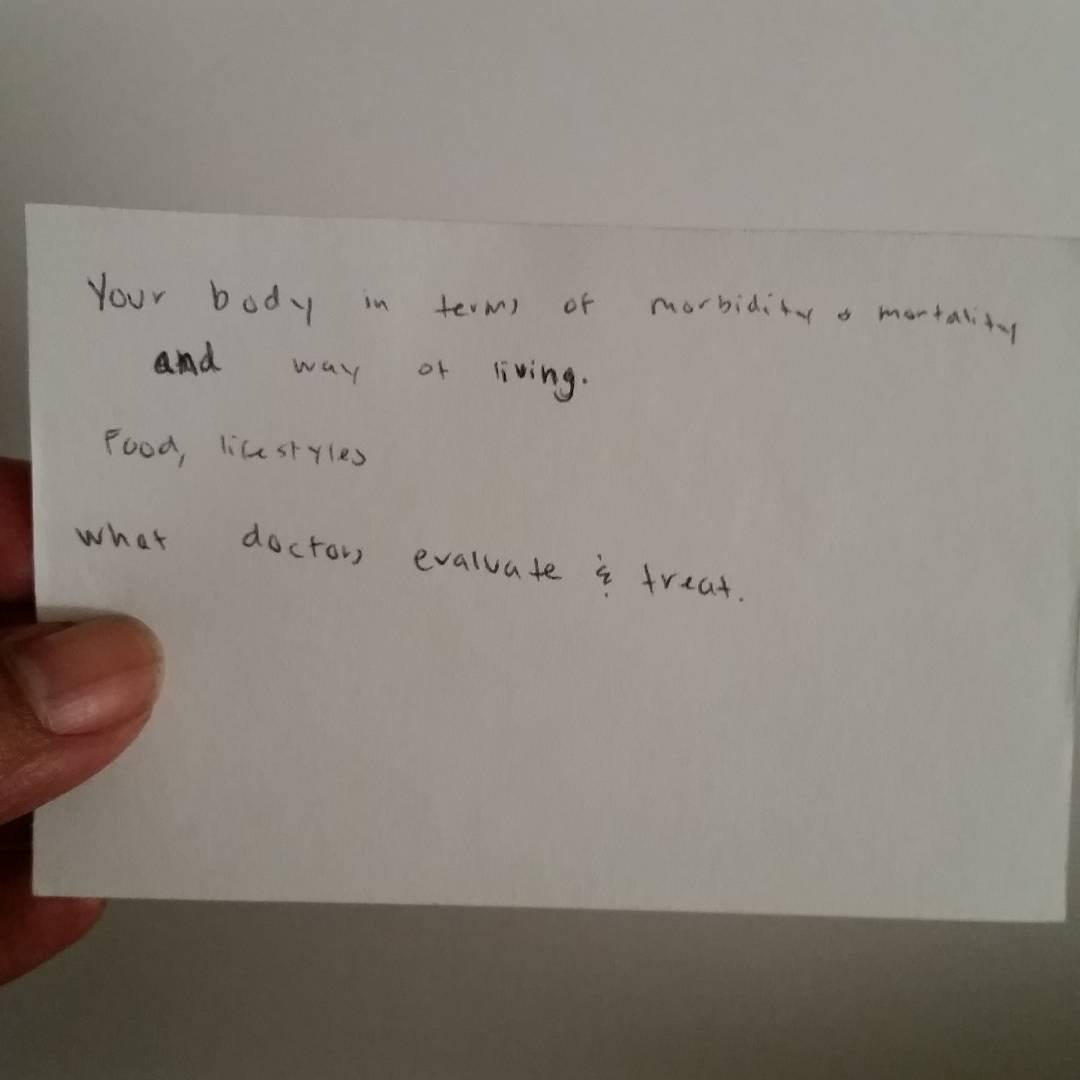 Your body in terms of morbidity & mortality
and way of living.
Food, lifestyles
what doctors evaluate & treat.